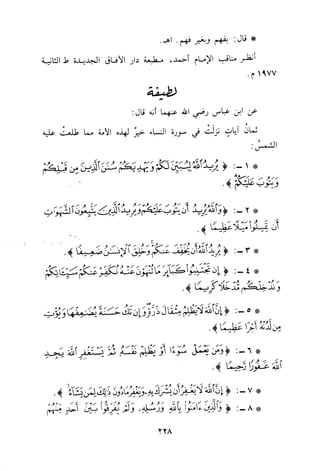 * قال: بفهم وبغير فهم. اهـ.
أنظر مناقب الإمام أحمد، مطبعة دار الآفاق الجديدة ط الثانية
١٩٧٧ م.
لطيفة
عن ابن عباس رضي الله عنهما أنه قال:
ثمانُ آياتٍ نزلتْ في سورة النساء خيرٌ لهذه الأمة مما طلعتْ عليه
الشمسُ:
* ١ -: ﴿ يُرِيدُ اللَّهُ لِيُبَيِّنَ لَكُمْ وَيَهْدِيَكُمْ سُنَنَ الَّذِينَ مِن قَبْلِكُمْ
وَيَتُوبَ عَلَيْكُمْ ﴾.
* ٢ -: ﴿ وَاللَّهُ يُرِيدُ أَن يَتُوبَ عَلَيْكُمْ وَيُرِيدُ الَّذِينَ يَتَّبِعُونَ الشَّهَوَاتِ
أَن تَمِيلُوا مَيْلًا عَظِيمًا ﴾.
* ٣ -: ﴿ يُرِيدُ اللَّهُ أَن يُخَفِّفَ عَنكُمْ وَخُلِقَ الْإِنسَانُ ضَعِيفًا ﴾.
* ٤ -: ﴿ إِن تَجْتَنِبُوا كَبَائِرَ مَا تُنْهَوْنَ عَنْهُ نُكَفِّرْ عَنكُمْ سَيِّئَاتِكُمْ
وَنُدْخِلْكُم مُّدْخَلًا كَرِيمًا ﴾.
* ٥ -: ﴿ إِنَّ اللَّهَ لَا يَظْلِمُ مِثْقَالَ ذَرَّةٍ وَإِن تَكُ حَسَنَةً يُضَاعِفْهَا وَيُؤْتِ
مِن لَّدُنْهُ أَجْرًا عَظِيمًا ﴾.
* ٦ -: ﴿ وَمَن يَعْمَلْ سُوءًا أَوْ يَظْلِمْ نَفْسَهُ ثُمَّ يَسْتَغْفِرِ اللَّهَ يَجِدِ
اللَّهَ غَفُورًا رَّحِيمًا ﴾.
* ٧ -: ﴿ إِنَّ اللَّهَ لَا يَغْفِرُ أَن يُشْرَكَ بِهِ وَيَغْفِرُ مَا دُونَ ذَٰلِكَ لِمَن يَشَاءُ ﴾.
* ٨ -: ﴿ وَالَّذِينَ ءَامَنُوا بِاللَّهِ وَرُسُلِهِ وَلَمْ يُفَرِّقُوا بَيْنَ أَحَدٍ مِّنْهُمْ
٢٢٨